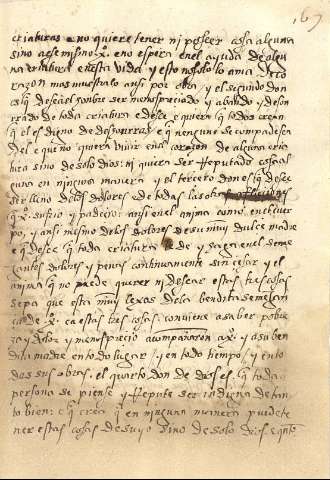 167
criaturas e no quiere tener ni poseer cosa alguna
sino a ese mismo x̃.º e no espera en el ayuda de algu
na criatura en esta vida y esto no solo lo ama de co
razon mas muestralo ansi por obra, y el segundo don
es q̃ desea el sonbre ser menospreciado y abatido y deson
rrado de toda criatura e desee e quiera q̃ todos crean
q̃ el es digno de desonrras e q̃ nenguno se conpadesca
del e que no quiera vivir en el corazon de alguna cria
tura sino de solo dios: ni quiera ser Reputado cosa al
cuna en ninguna manera y el tercero don es q̃ desee
ser lleno de los dolores e de todas las otras
q̃ x̃.º sufrio y padecio: ansi en el anima como en el cuer
po, y ansi mismo de los dolores de su muy dulce madre
e q̃ desee q̃ toda criatura le de y haga en el seme
jantes dolores y penas continuamente sin cesar y el
anima q̃ no puede querer ni desear estas tres cosas
sepa que esta muy lexos de la bendita semejan
ca de x̃.º ca estas tres cosas, conviene a saber pobre
za y dolor y menosprecio acompañaron a x̃.º y a su ben
dita madre en todo lugar, y en todo tiempo, y en to
das sus obras, el quarto don de dios es. q̃ toda
persona se piense y Repute ser indigna de tan
to bien: e q̃ crea q̃ en ninguna manera puede te
ner estas cosas de suyo sino de solo dios e q̃nto